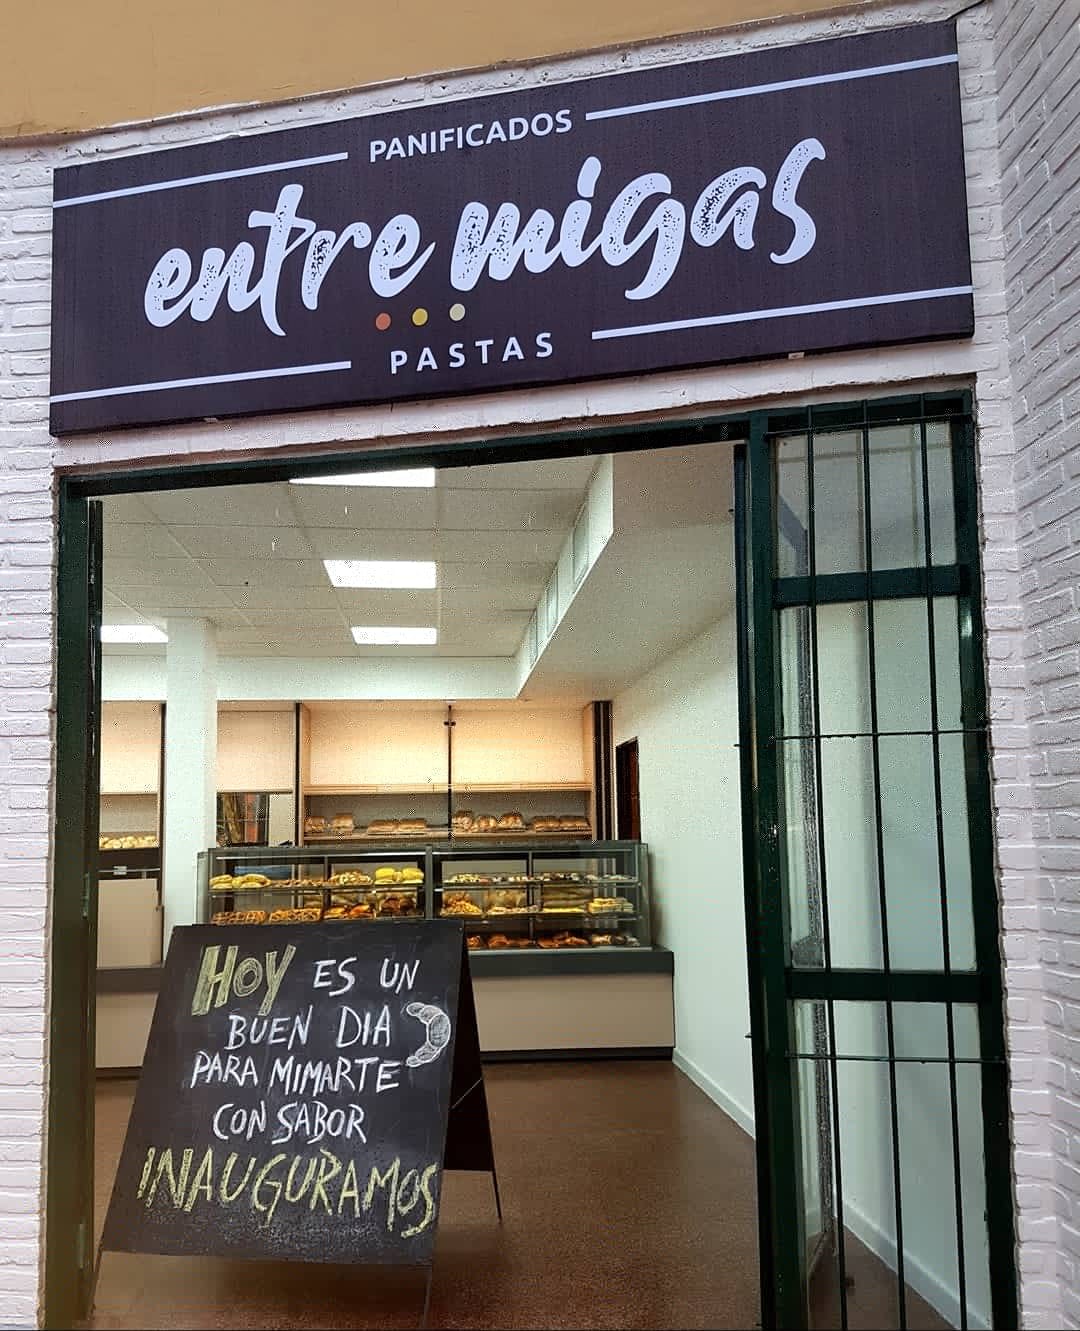 PANIFICADOS
entre migas
PASTAS
HOY ES UN
BUEN DIA
PARA MIMARTE
CON SABOR
INAUGURAMOS